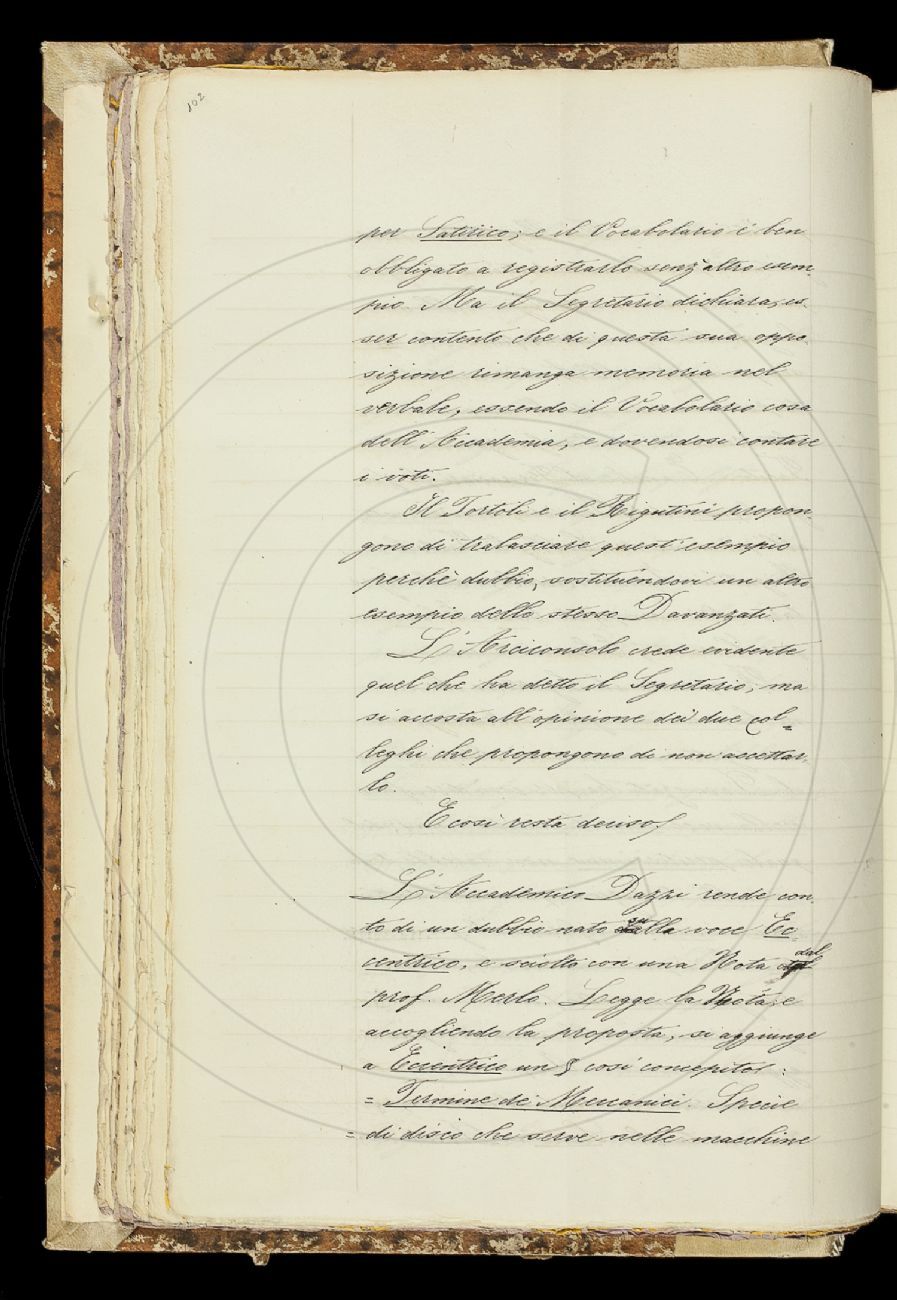 102
per Satirico; e il Vocabolario è ben
obbligato a registrarlo senz'altro esem-
pio. Ma il Segretario dichiara, es-
ser contento che di questa sua oppo-
sizione rimanga memoria nel
verbale, essendo il Vocabolario cosa
dell'Accademia, e dovendosi contare
i voti.
Il Tortoli e il Rigutini propon-
gono di tralasciare quest'esempio
perchè dubbio, sostituendovi un altro
esempio dello stesso Davanzati.
L'Arciconsolo crede evidente
quel che ha detto il Segretario; ma
si accosta all'opinione dei due col=
leghi che propongono di non accettar-
lo.
E così resta deciso.
L'Accademico Dazzi rende con-
to di un dubbio nato sulla voce Ec-
centrico, e sciolto con una Nota dal
prof. Merlo. Legge la Nota; e
accogliendo la proposta, si aggiunge
a Eccentrico un § così concepito:
= Termine de' Meccanici. Specie
= di disco che serve nelle macchine